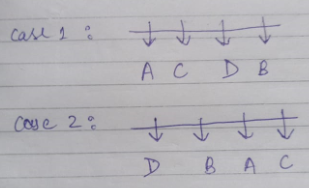 Case 1 :
A C D B
Case 2 :
D B A C